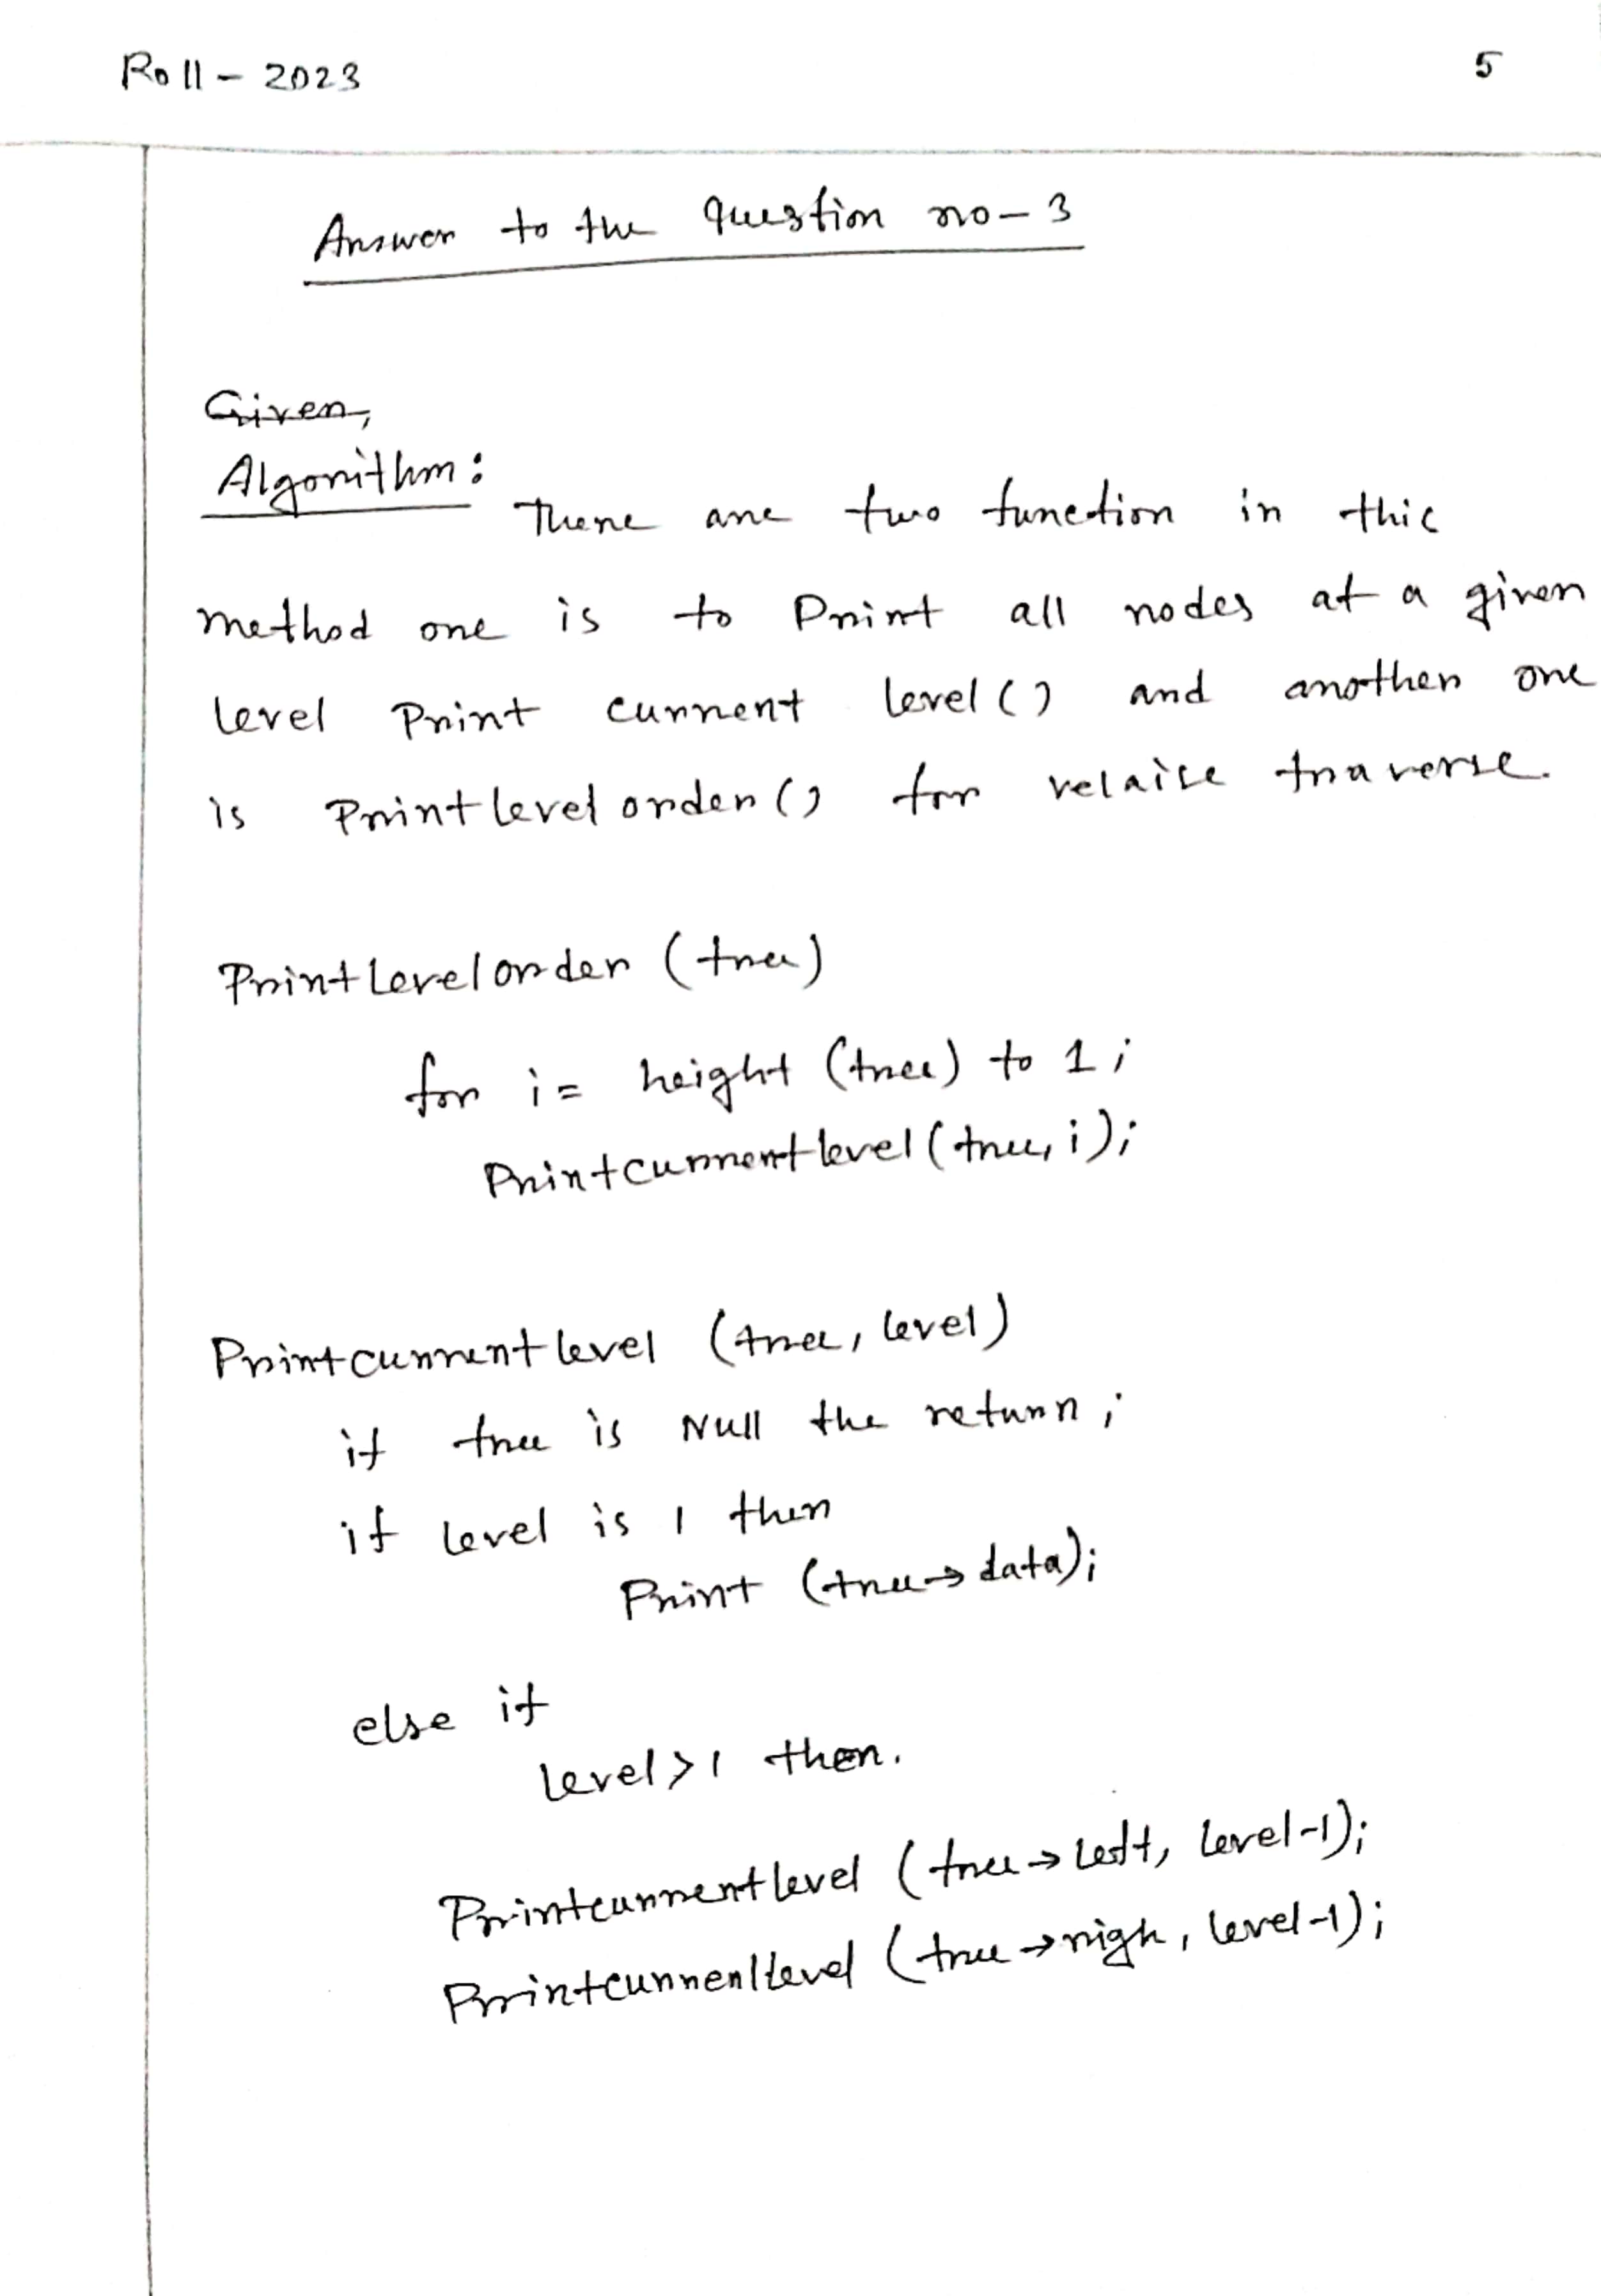 Roll - 2023
5
Answer to the question no - 3
Given,
Algorithm:
There are two function in this
method one is to Print all nodes at a given
level Print current level () and another one
is Printlevel order () for relaise traverse.
PrintLevelorder (tree)
for i = height (tree) to 1;
Printcurrentlevel (tree, i);
Printcurrentlevel (tree, level)
if tree is Null the return;
if level is 1 then
Print (tree → data);
else if
level > 1 then.
Printcurrentlevel (tree → Left, level-1);
Printcurrenllevel (tree → righ, level-1);